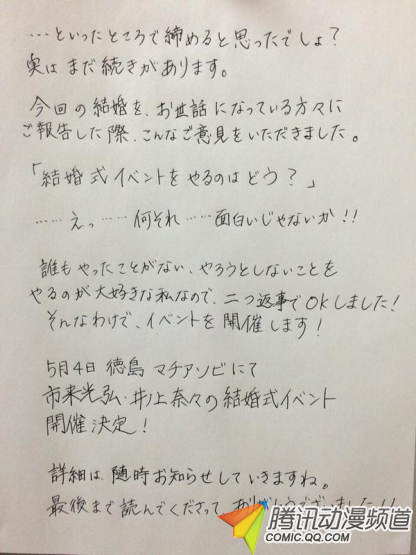 …といったところで締めると思ったでしょ？
実はまだ続きがあります。
今回の結婚を、お世話になっている方々に
ご報告した際、こんなご意見をいただきました。
「結婚式イベントをやるのはどう？」
……えっ……何それ……面白いじゃないか！！
誰もやったことがない、やろうとしないことを
やるのが大好きな私なので、二つ返事でOKしました！
そんなわけで、イベントを開催します！
5月4日 徳島 マチアソビにて
市来光弘・井ノ上奈々の結婚式イベント
開催決定！
詳細は、随時お知らせしていきますね。
最後まで読んでくださって、ありがとうございました！！
腾讯动漫频道
COMIC.QQ.COM